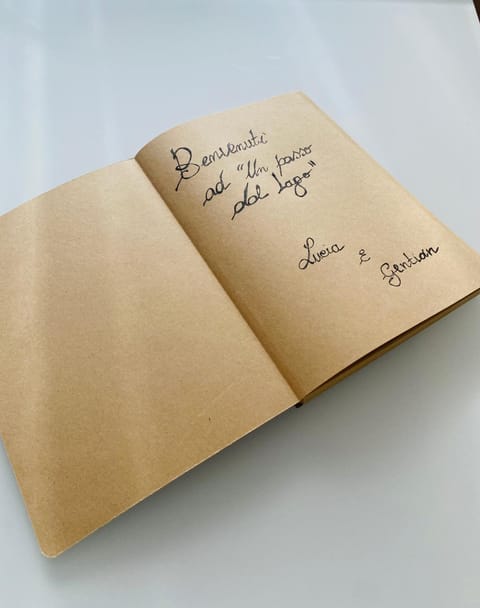 Benvenuti
ad "Un passo
dal lago"
Lucia E
Gentian